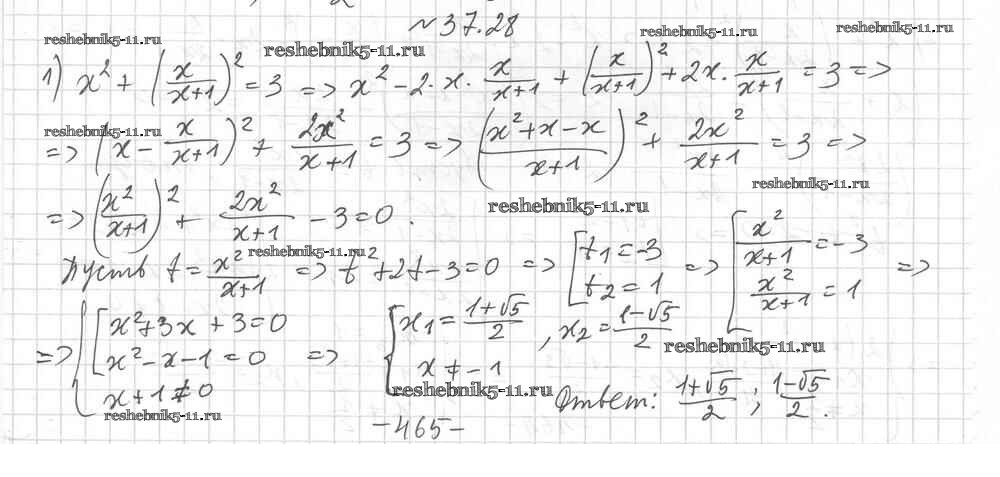 №37.28
reshebnik5-11.ru reshebnik5-11.ru reshebnik5-11.ru reshebnik5-11.ru
1) x² + (x/(x+1))² = 3 => x² - 2·x·x/(x+1) + (x/(x+1))² + 2x·x/(x+1) = 3 =>
reshebnik5-11.ru
=> (x - x/(x+1))² + 2x²/(x+1) = 3 => ((x²+x-x)/(x+1))² + 2x²/(x+1) = 3 =>
reshebnik5-11.ru
=> (x²/(x+1))² + 2x²/(x+1) - 3 = 0.
reshebnik5-11.ru
reshebnik5-11.ru
Пусть t = x²/(x+1) => t² + 2t - 3 = 0 => [t₁ = -3; t₂ = 1 => [x²/(x+1) = -3; x²/(x+1) = 1 =>
=> {[x² + 3x + 3 = 0; x² - x - 1 = 0; x + 1 ≠ 0 => {x₁ = (1+√5)/2, x₂ = (1-√5)/2; x ≠ -1
reshebnik5-11.ru
reshebnik5-11.ru
reshebnik5-11.ru
Ответ: (1+√5)/2; (1-√5)/2.
-465-